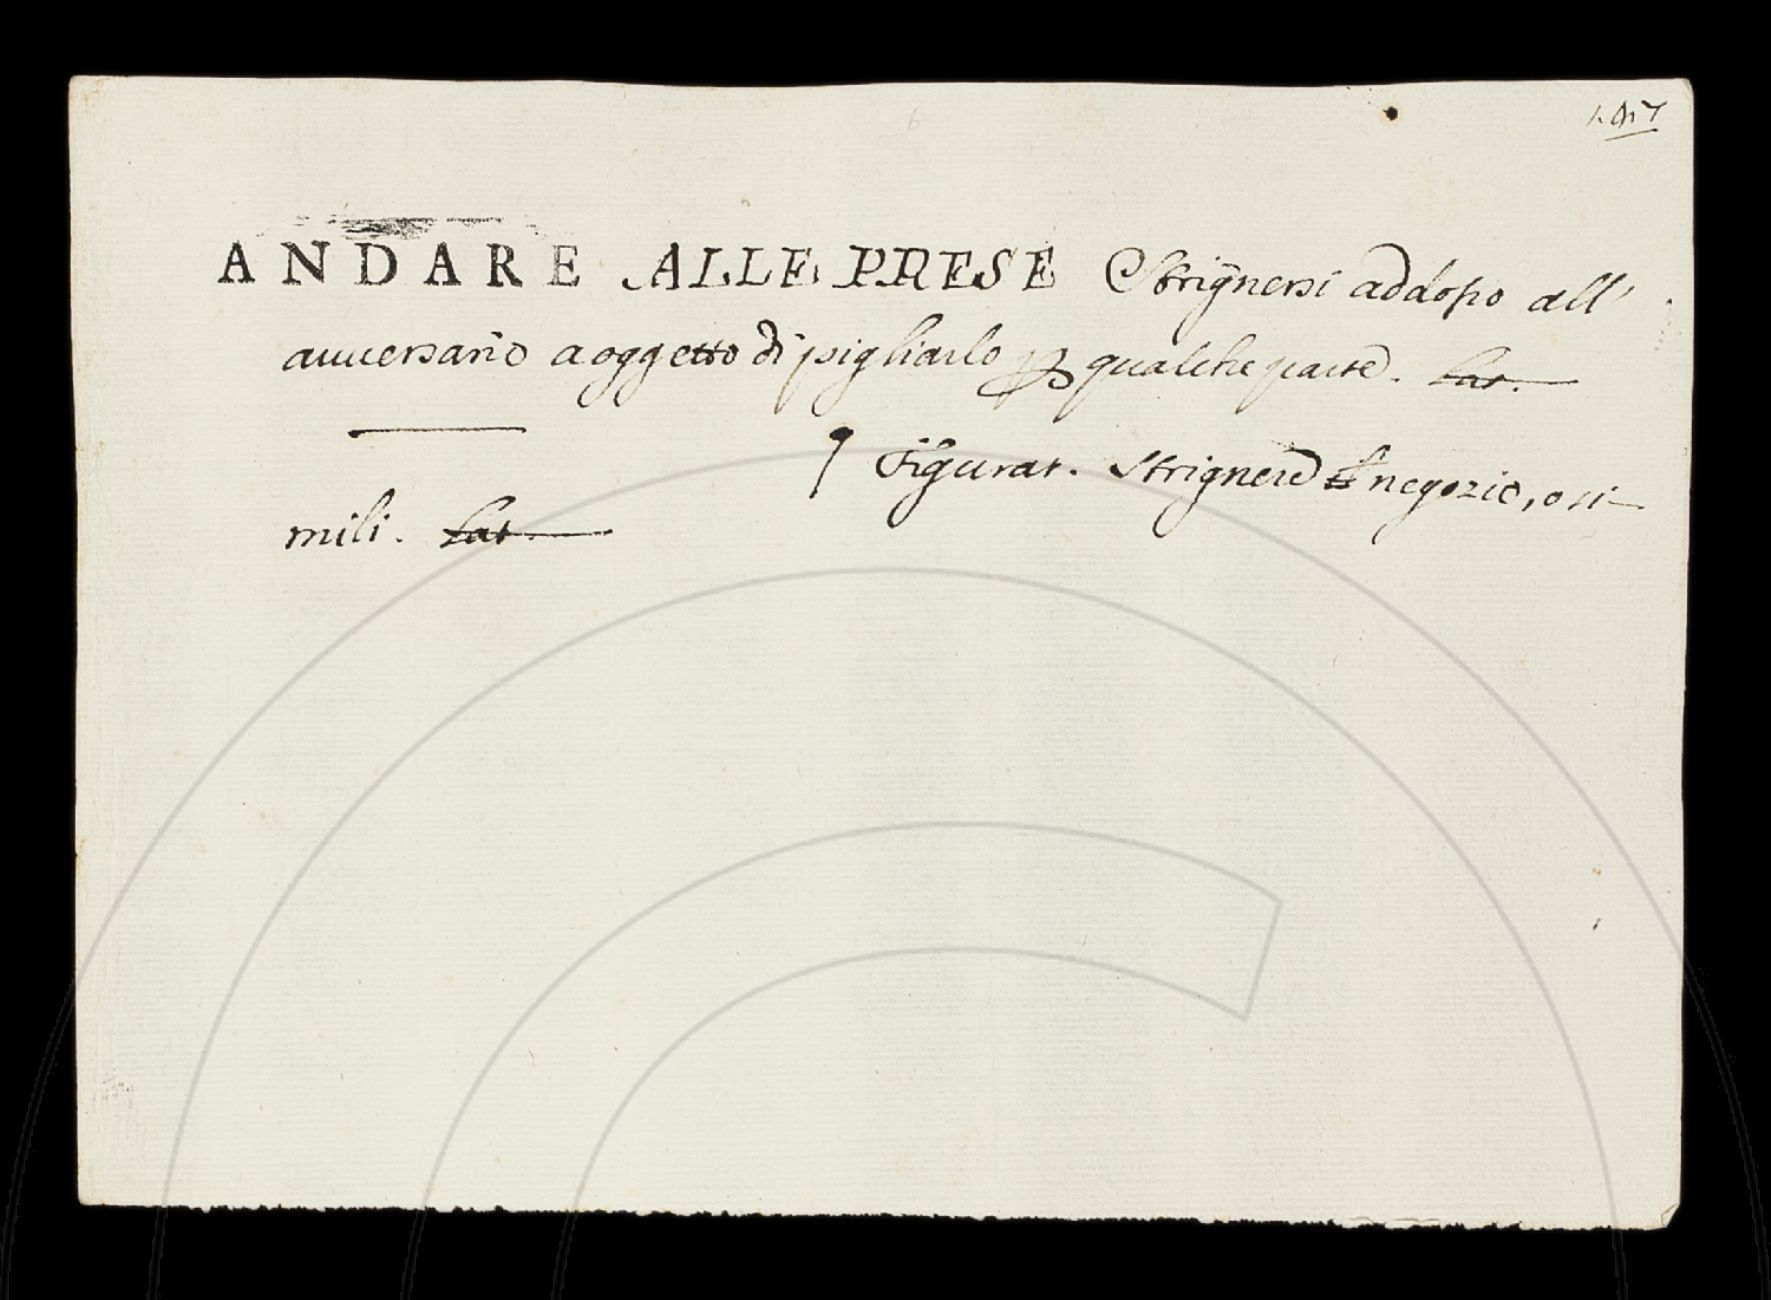 ANDARE ALLE PRESE Strignersi addosso all'
avversario a oggetto di pigliarlo ꝑ qualche parte. Lat.
¶ Figurat. Strignere il negozio, o si-
mili. Lat.